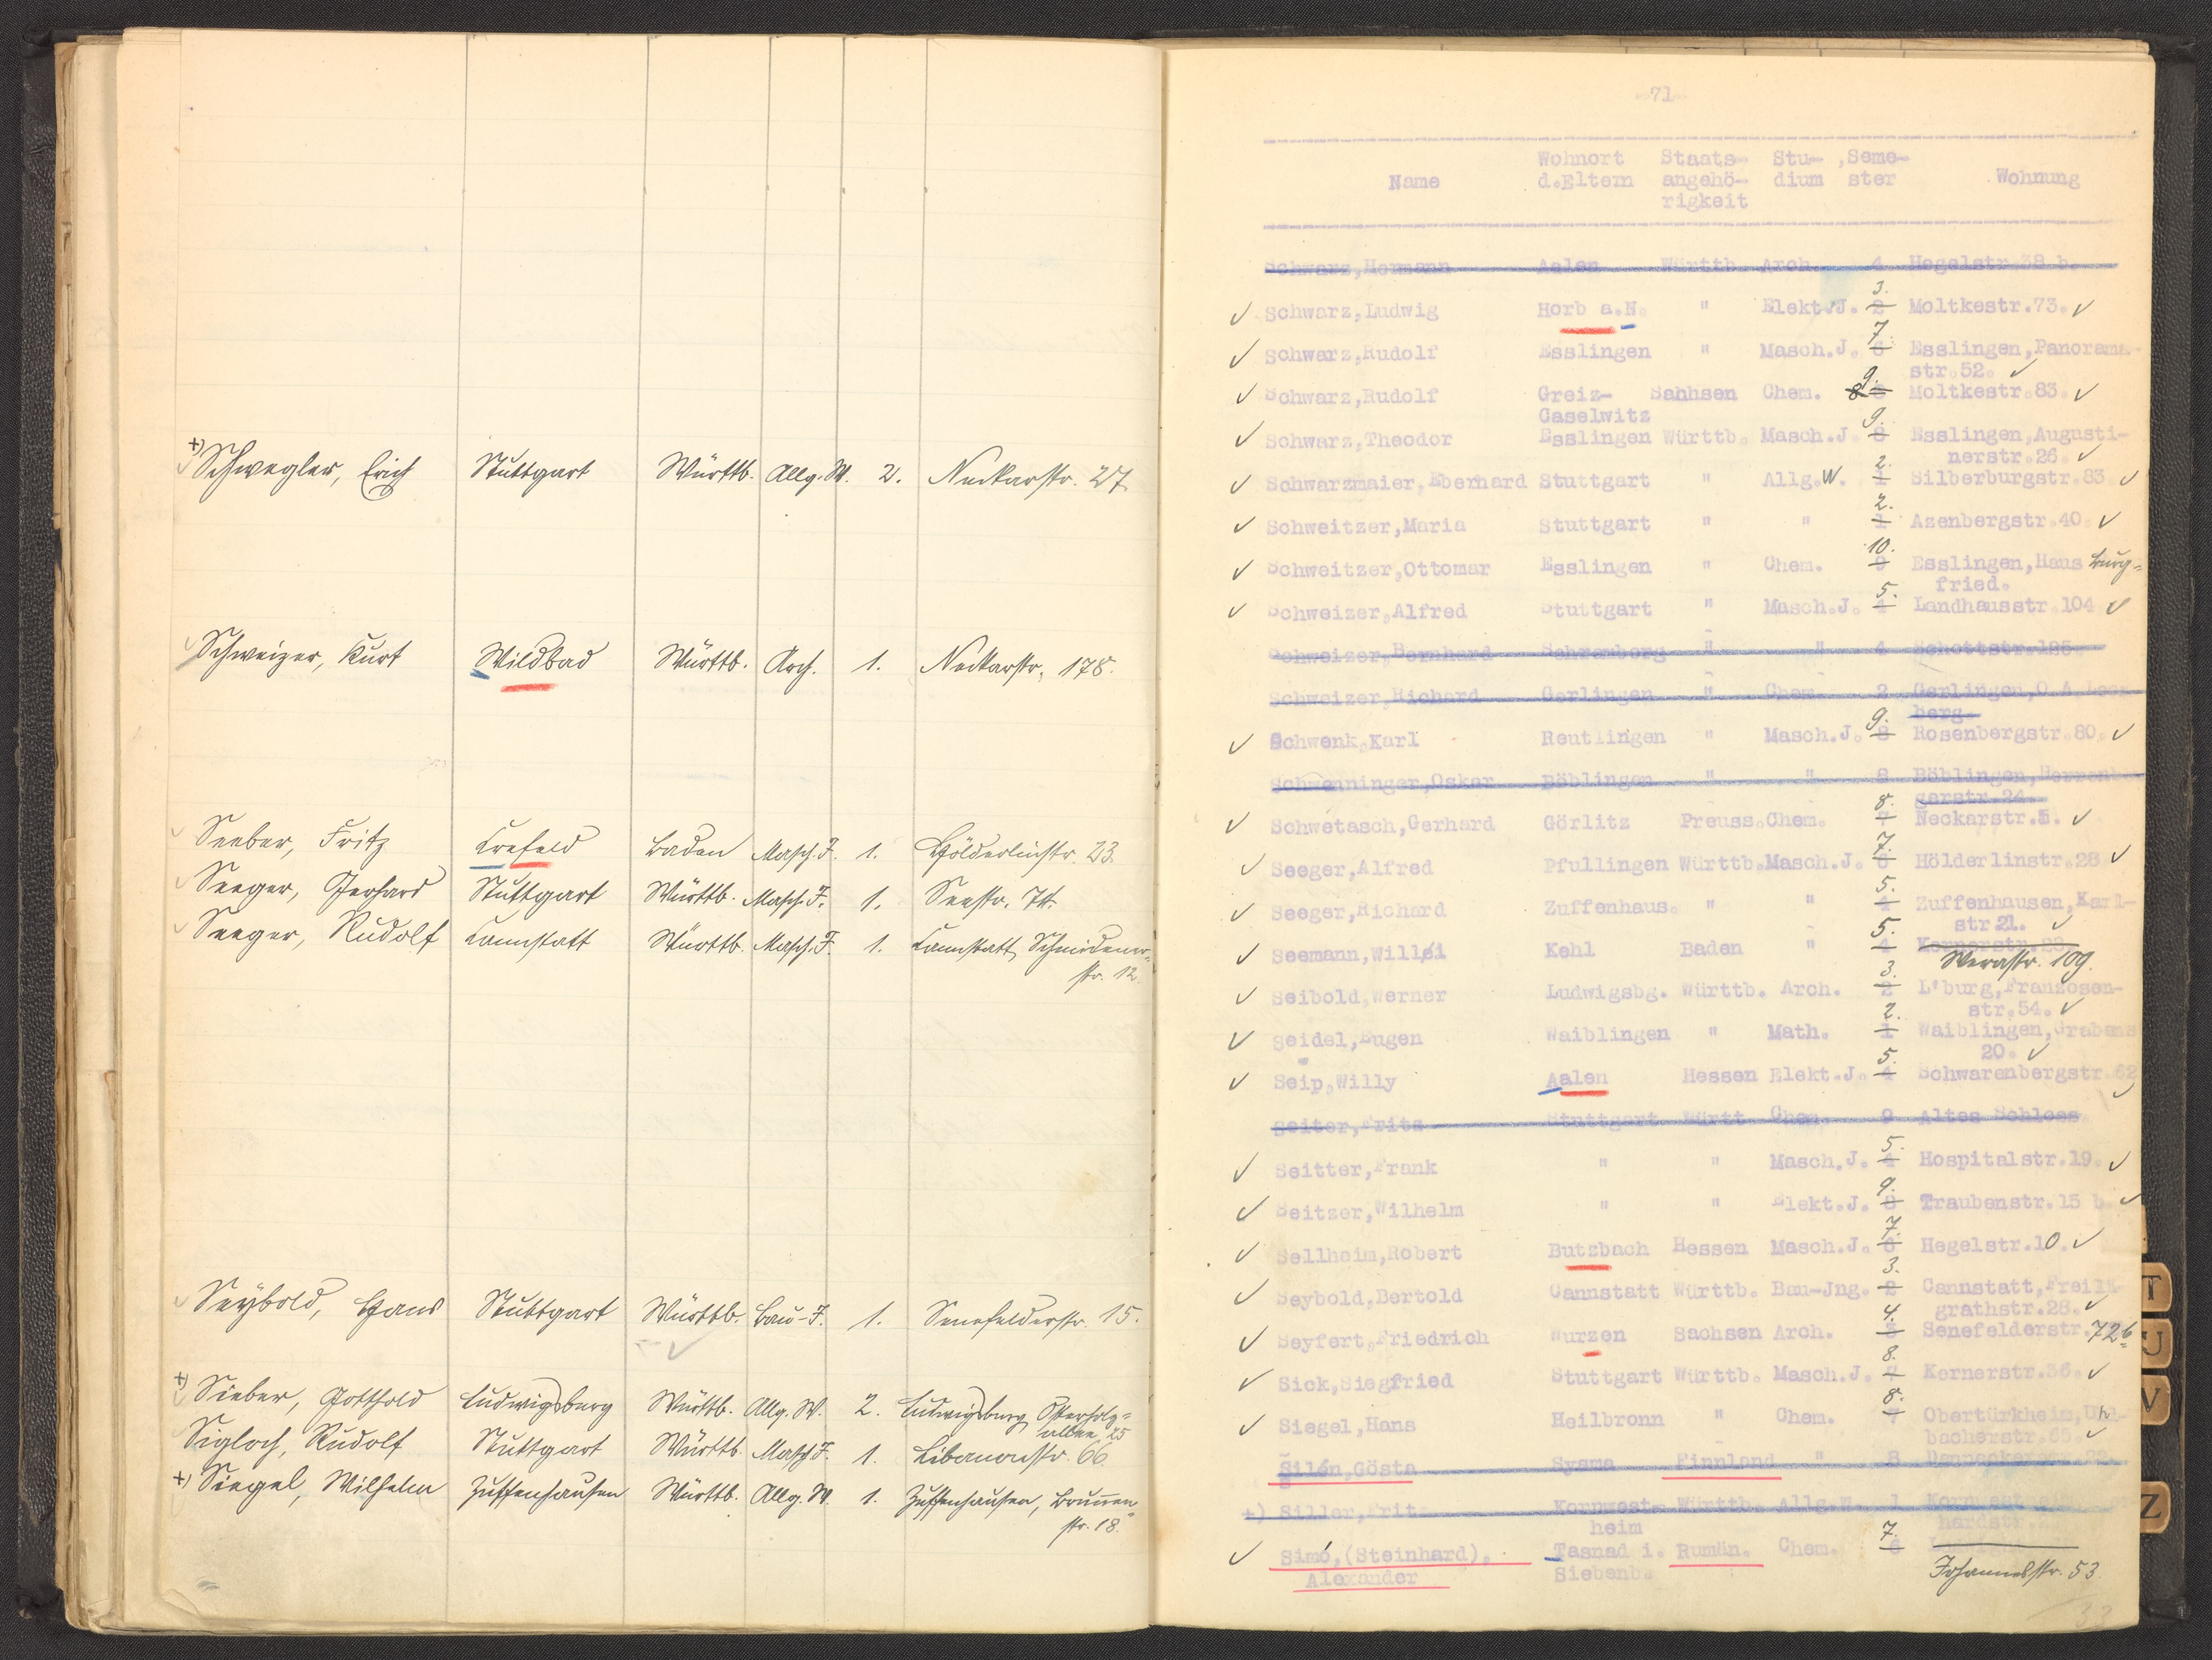 +) Schwegler, Erich Stuttgart Württb. Allg. W. 2. Neckarstr. 27.
Schweizer, Kurt Wildbad Württb. Arch. 1. Neckarstr. 178.
Seeber, Fritz Crefeld Baden Masch. J. 1. Hölderlinstr. 23.
Seeger, Gerhard Stuttgart Württb. Masch. J. 1. Seestr. 74.
Seeger, Rudolf Cannstatt Württb. Masch. J. 1. Cannstatt, Schmidener-
str. 12.
Seybold, Hans Stuttgart Württb. Bau-J. 1. Senefelderstr. 15.
+) Sieber, Gotthold Ludwigsburg Württb. Allg. W. 2. Ludwigsburg Osterholz-
allee 25
Sigloch, Rudolf Stuttgart Württb. Masch. J. 1. Libanonstr. 66.
+) Siegel, Wilhelm Zuffenhausen Württb. Allg. W. 1. Zuffenhausen, Brunnen-
str. 18.
-71-
Wohnort Staats- Stu- , Seme-
Name d.Eltern angehö- dium ster Wohnung
rigkeit
Schwarz,Hermann Aalen Württb. Arch. 4 Hegelstr.38 b.
Schwarz,Ludwig Horb a.N. " Elekt.J. 2 3. Moltkestr.73.
Schwarz,Rudolf Esslingen " Masch.J. 6 7. Esslingen,Panorama-
str.52.
Schwarz,Rudolf Greiz- Sachsen Chem. 8 9. Moltkestr.83.
Caselwitz
Schwarz,Theodor Esslingen Württb. Masch.J. 8 9. Esslingen,Augusti-
nerstr.26.
Schwarzmaier,Eberhard Stuttgart " Allg.W. 1 2. Silberburgstr.83
Schweitzer,Maria Stuttgart " " 1 2. Azenbergstr.40.
Schweitzer,Ottomar Esslingen " Chem. 9 10. Esslingen,Haus Burg-
fried.
Schweizer,Alfred Stuttgart " Masch.J. 4 5. Landhausstr.104
Schweizer,Bernhard Schramberg " " 4 Schottstr.125.
Schweizer,Richard Gerlingen " Chem. 2 Gerlingen,O.A.Leon-
berg.
Schwenk,Karl Reutlingen " Masch.J. 8 9. Rosenbergstr.80.
Schwenninger,Oskar Böblingen " " 8 Böblingen,Herrenb-
gerstr.24.
Schwetasch,Gerhard Görlitz Preuss.Chem. 7 8. Neckarstr.5.
Seeger,Alfred Pfullingen Württb.Masch.J. 6 7. Hölderlinstr.28
Seeger,Richard Zuffenhaus. " " 4 5. Zuffenhausen,Karl-
str 21.
Seemann,Willi Kehl Baden " 4 5. Kernerstr.23.
Werastr. 109.
Seibold,Werner Ludwigsbg. Württb. Arch. 2 3. L'burg,Franzosen-
str.54.
Seidel,Eugen Waiblingen " Math. 1 2. Waiblingen,Grabens
20.
Seip,Willy Aalen Hessen Elekt.J. 4 5. Schwarenbergstr.62
Seiter,Fritz Stuttgart Württ. Chem. 9 Altes Schloss
Seitter,Frank " " Masch.J. 4 5. Hospitalstr.19.
Seitzer,Wilhelm " " Elekt.J. 8 9. Traubenstr.15 b.
Sellheim,Robert Butzbach Hessen Masch.J. 6 7. Hegelstr.10.
Seybold,Bertold Cannstatt Württb. Bau-Jng. 2 3. Cannstatt,Freilig-
grathstr.28.
Seyfert,Friedrich Wurzen Sachsen Arch. 3 4. Senefelderstr.72b
Sick,Siegfried Stuttgart Württb. Masch.J. 7 8. Kernerstr.36.
Siegel,Hans Heilbronn " Chem. 7 8. Obertürkheim,Uhl-
bacherstr.65.
Silén,Gösta Sysma Finnland " 8
+) Siller,Fritz Kornwest- Württb. Allg.W. 1 Kornwestheim
heim
Simó,(Steinhard), Tasnad i. Rumän. Chem. 6 7.
Alexander Siebenb. Johannesstr. 53.
33
T
U
V
Z